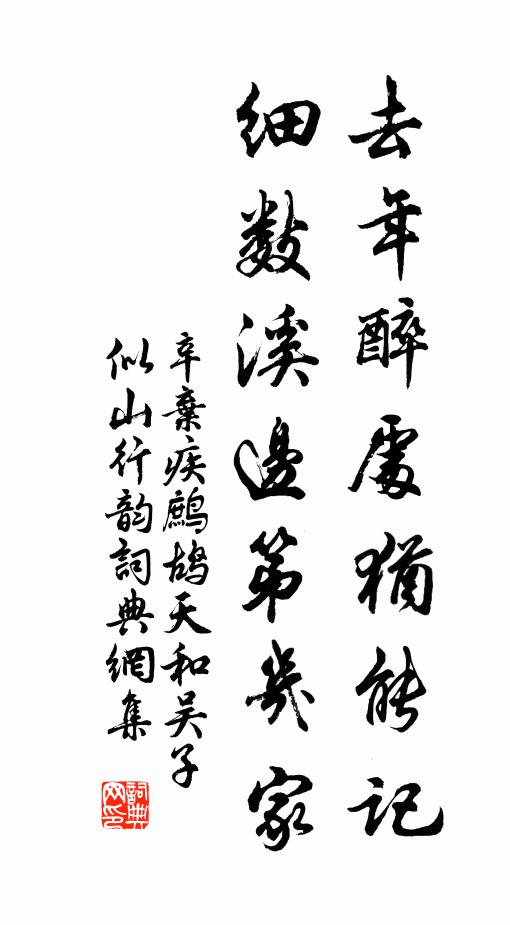 去年醉處猶能記
細數溪邊第幾家
辛棄疾鷓鴣天和吴子
似山行韵詞典網集
詞典网印